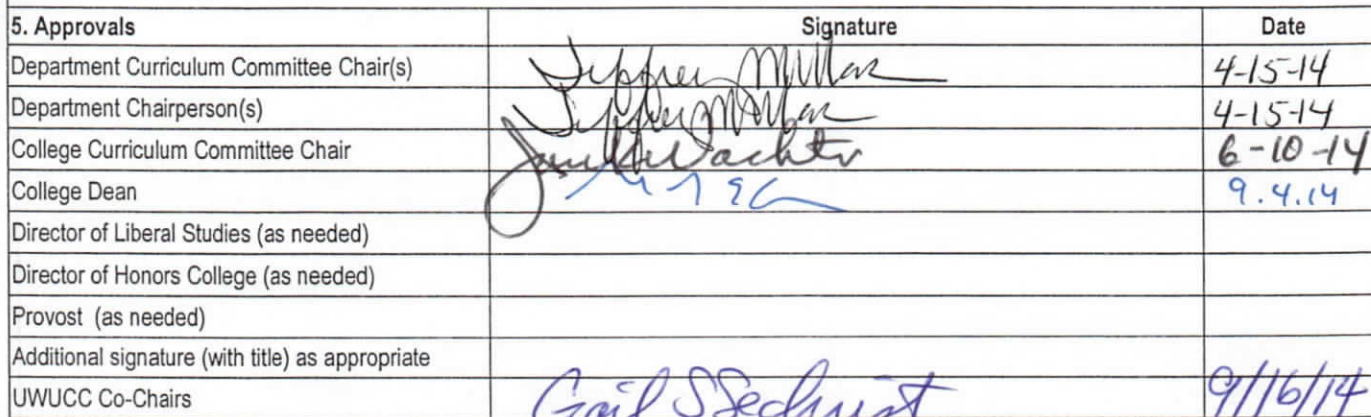 5. Approvals Signature Date
Department Curriculum Committee Chair(s) 4-15-14
Department Chairperson(s) 4-15-14
College Curriculum Committee Chair 6-10-14
College Dean 9.4.14
Director of Liberal Studies (as needed)
Director of Honors College (as needed)
Provost (as needed)
Additional signature (with title) as appropriate
UWUCC Co-Chairs Gail S Sechrist 9/16/14